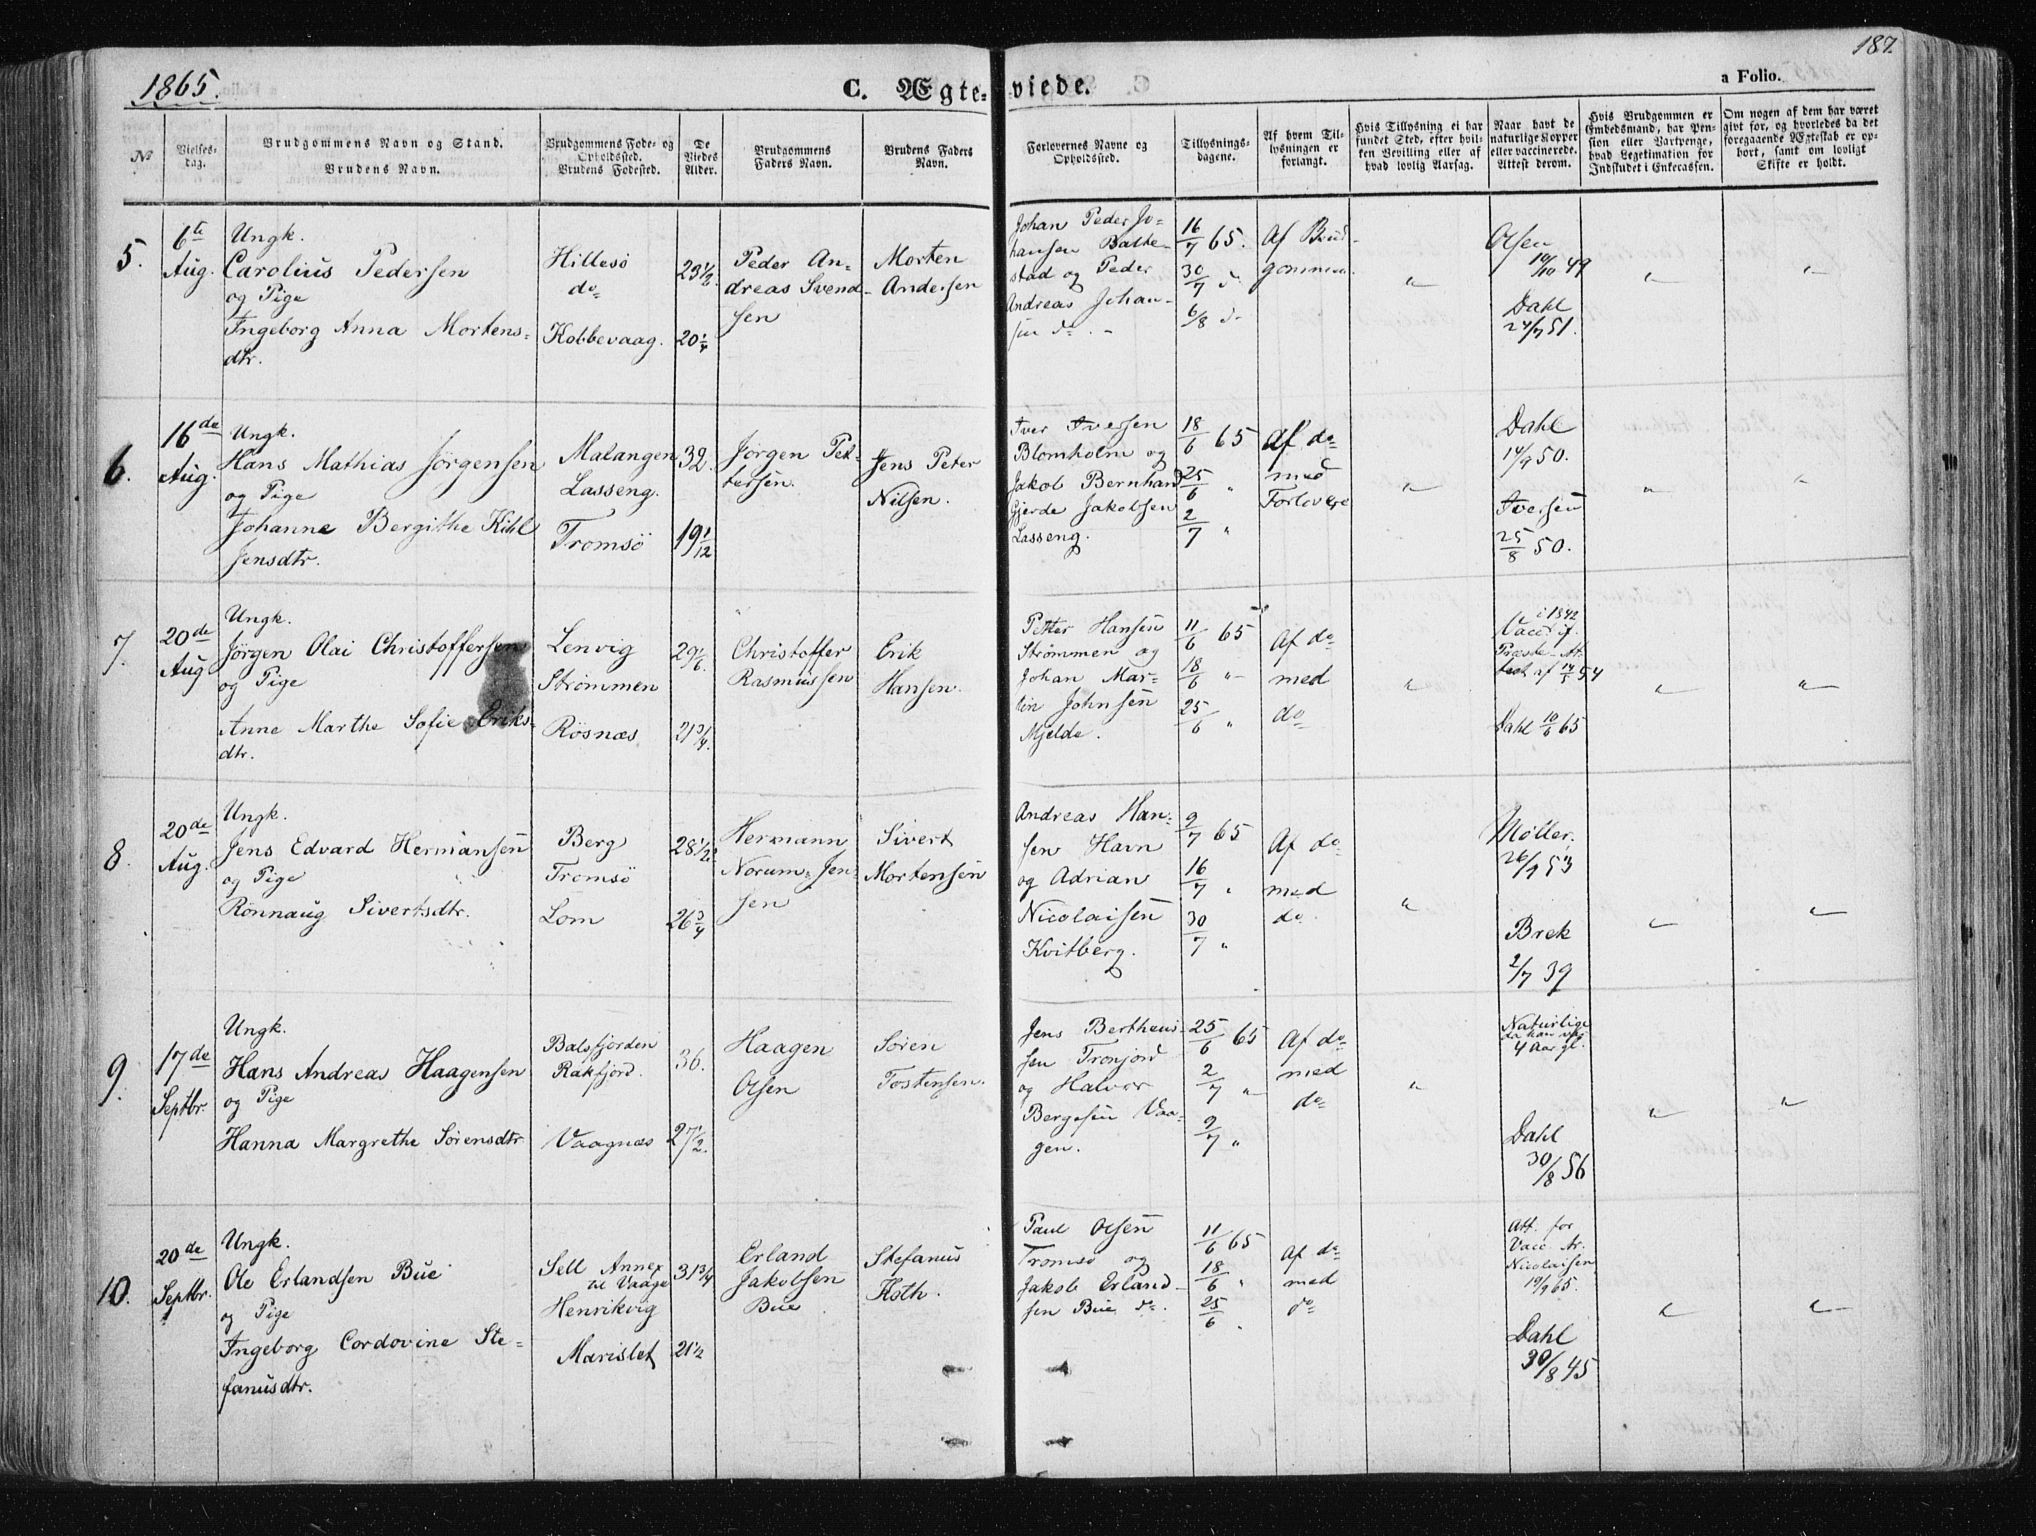 1865.
C. Ægteviede.
187.
a Folio.
No
Vielsesdag.
Brudgommens Navn og Stand.
Brudens Navn.
Brudgommens Føde- og
Opholdssted.
Brudens Fødested.
De
Viedes
Alder.
Brudgommens
Faders Navn.
Brudens Faders
Navn.
Forlovernes Navne og
Opholdssted.
Tillysnings-
dagene.
Af hvem Til-
lysningen er
forlangt.
Hvis Tillysning ei har
fundet Sted, efter hvil-
ken Bevilling eller af
hvad lovlig Aarsag.
Naar havt de
naturlige Kopper
eller vaccinerede.
Attest derom.
Hvis Brudgommen er
Embedsmand, har Pen-
sion eller Vartpenge,
hvad Legitimation for
Indskudet i Enkecassen.
Om nogen af dem har været
gift før, og hvorledes da det
foregaaende Ægteskab er op-
hørt, samt om lovligt
Skifte er holdt.
5.
6te
Aug.
Ungk.
Carolius Pedersen
og Pige
Ingeborg Anna Mortens-
dtr.
Hillesö
do
Kobbevaag.
23 1/2
20 1/4
Peder An-
dreas Svend-
sen
Morten
Andersen
Johan Peder Jo-
hansen Balte-
stad og Peder
Andreas Johan-
sen do. -
16/7 65.
30/7 d.
6/8 d-
Af Brud-
gommen
"
Olsen
14/10 49
Dahl
24/7 51.
"
"
6.
16de
Aug.
Ungk.
Hans Mathias Jörgensen
og Pige
Johanne Bergithe Kihl
Jensdtr.
Malangen
Lasseng.
Tromsö
32.
19 1/12
Jörgen Pet-
tersen.
Jens Peter
Nilsen.
Iver Iversen
Blomholm og
Jakob Bernhard
Gjerde Jakobsen
Lasseng.
18/6 65
25/6 "
2/7 "
Af do
med
Forlovere
"
Dahl
14/9 50.
Iversen
25/8 50.
"
"
7.
20de
Aug
Ungk.
Jörgen Olai Christoffersen
og Pige
Anne Marthe Sofie Eriks-
dtr.
Lenvig
Strömmen
Rösnæs
29 1/6.
21 3/4.
Christoffer
Rasmussen
Erik
Hansen.
Petter Hansen
Strömmen og
Johan Mar-
tin Johnsen
Mjelde.
11/6 65
18/6 "
25/6 "
Af do
med
do
"
i 1842
Vacc. if.
Præste-At-
test af 14/5 54
Dahl 10/6 65
"
"
8.
20de
Aug.
Ungk.
Jens Edvard Hermansen
og Pige
Rönnaug Sivertsdtr.
Berg
Tromsö
Lom
28 1/2
26 3/4
Hermann
Norum-Jen-
sen
Sivert
Mortensen
Andreas Han-
sen Havn
og Adrian
Nicolaisen
Kvitberg.
9/7 65
16/7 "
30/7 "
Af do
med
do
"
Möller.
26/9 53
Brek
2/7 39
"
"
9.
17de
Septbr.
Ungk.
Hans Andreas Haagensen
og Pige
Hanna Margrethe Sörensdtr
Balsfjorden
Rakfjord.
Vaagnæs
36.
27 1/2.
Haagen
Olsen
Sören
Tostensen.
Jens Bertheus-
sen Tronjord
og Halvor
Bergesen Vaa-
gen.
25/6 65
2/7 "
9/7 "
Af do
med
do
"
Naturlige
da han var
4 Aar gl.
Dahl
30/8 56
"
"
10.
20de
Septbr.
Ungk.
Ole Erlandsen Bue
og Pige
Ingeborg Cordovine Ste-
fanusdtr.
Sell Annex
til Vaage
Henrikvig
Marislet
31 3/4
21 1/2
Erland
Jakobsen
Bue
Stefanus
Hoth.
Paul Olsen
Tromsö og
Jakob Erland-
sen Bue do.
11/6 65
18/6 "
25/6 .
Af do
med
do
Att. for
Vacc. Ar.
Nicolaisen
19/9 65.
Dahl
30/8 45
"
"